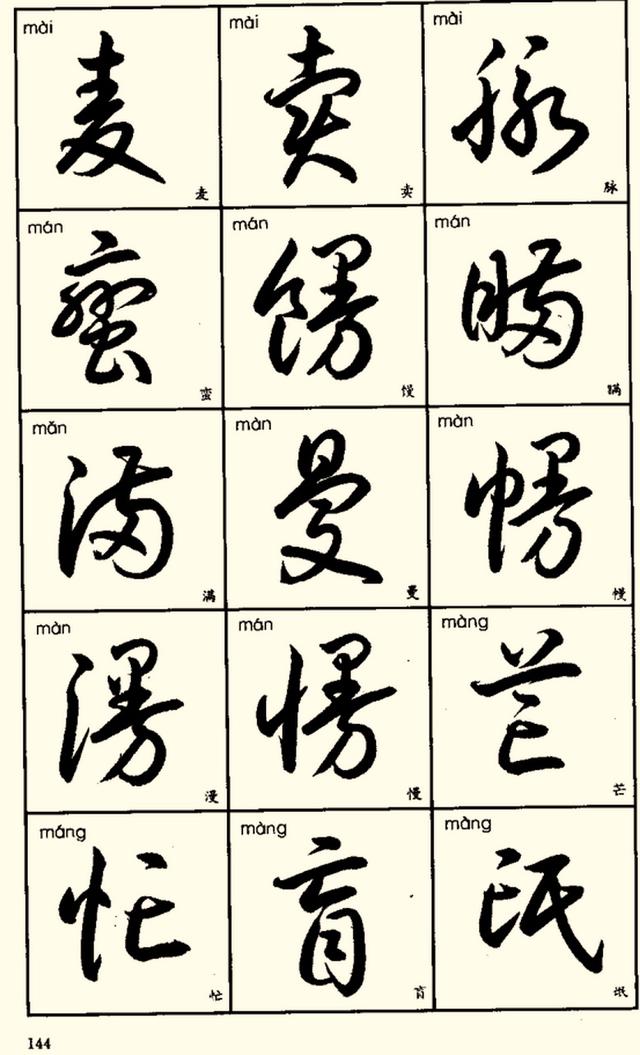 mài mài mài
麦 卖 脉
麦 卖 脉
mán mán mán
蛮 馒 瞒
蛮 馒 瞒
mǎn màn màn
满 曼 幔
满 曼 幔
màn mán màng
漫 慢 芒
漫 慢 芒
máng màng màng
忙 盲 氓
忙 盲 氓
144